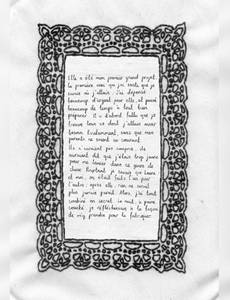 Elle a été mon premier grand projet,
la première fois que j'ai senti que je
savais où j'allais. J'ai dépensé
beaucoup d'argent pour elle, et passé
beaucoup de temps à tout bien
préparer. Il a d'abord fallu que je
trouve tout ce dont j'allais avoir
besoin. Évidemment, sans que mes
parents ne soient au courant.
Ils n'auraient pas compris, ils
auraient dit que j'étais trop jeune
pour me lancer dans ce genre de
chose. Pourtant, je savais que Laura
et moi, on était faits l'un pour
l'autre ; après elle, rien ne serait
plus jamais pareil. Alors, j'ai tout
combiné en secret. La nuit, à peine
couché, je réfléchissais à la façon
de m'y prendre pour la fabriquer.